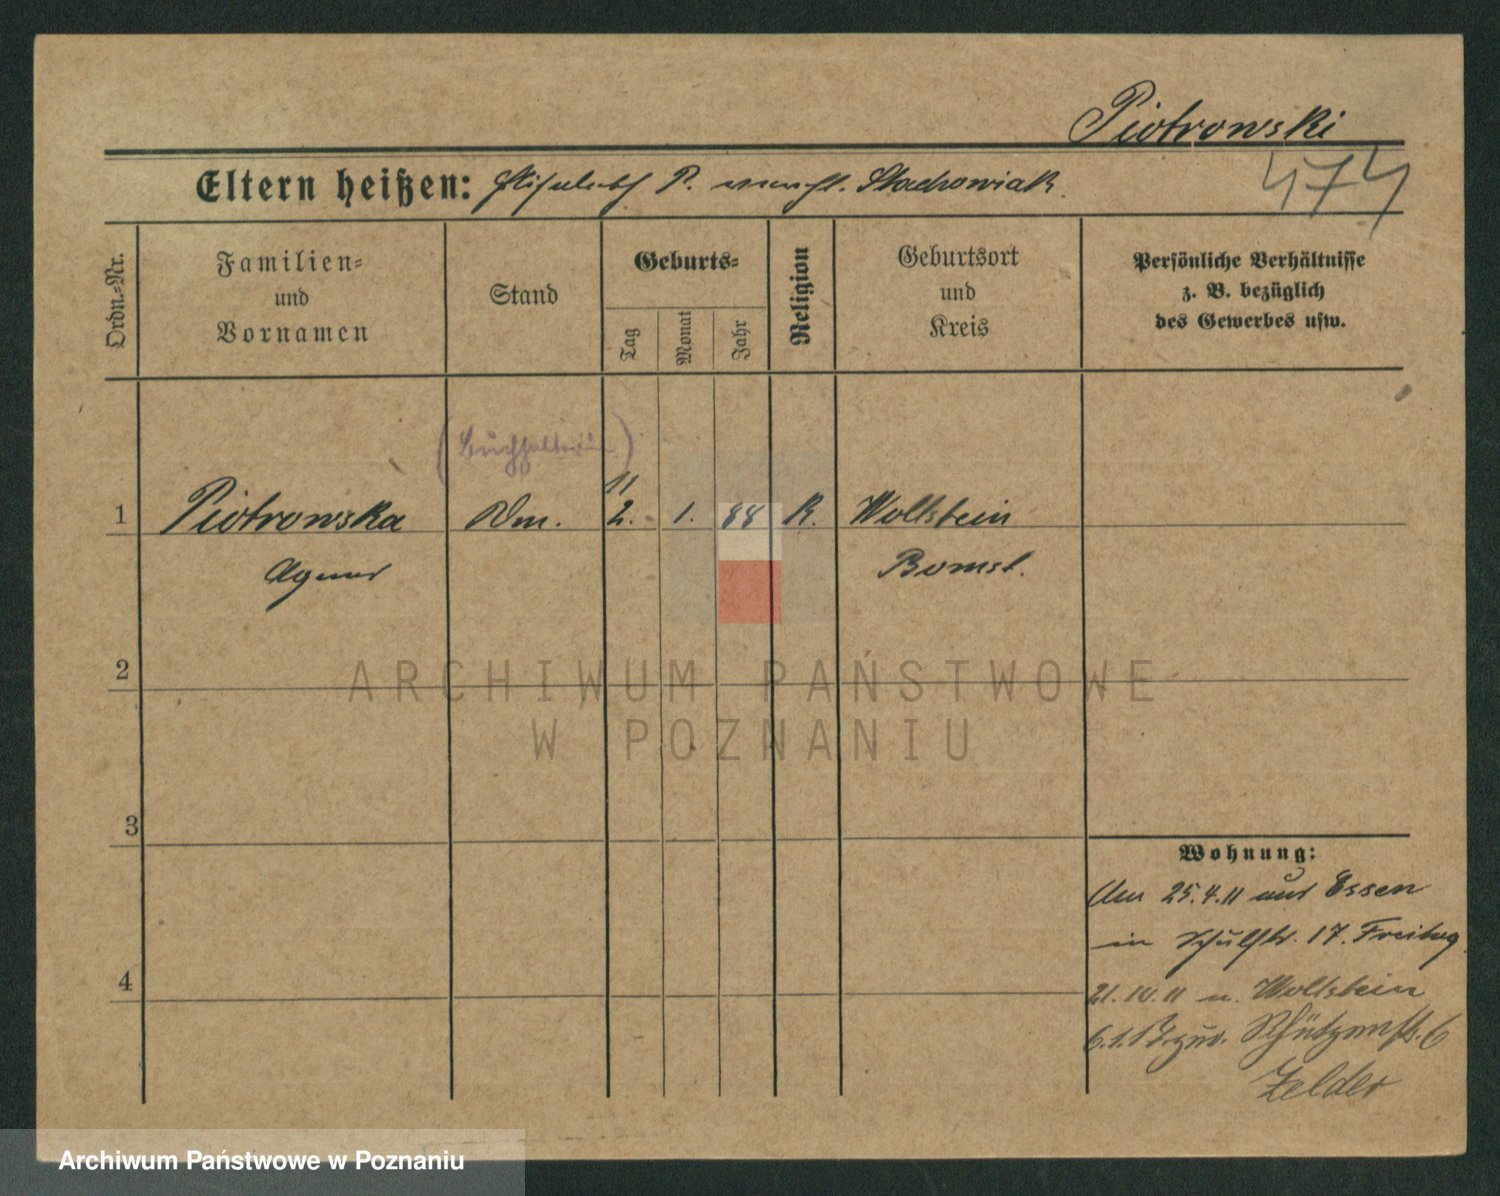 Piotrowski
474
Eltern heißen: Elisabeth P. Stachowiak.
Ordn.=Nr.
Familien=
und
Vornamen
Stand
Geburts=
Tag
Monat
Jahr
Religion
Geburtsort
und
Kreis
Persönliche Verhältnisse
z. B. bezüglich
des Gewerbes usw.
(Buchhalterin)
11
1 Piotrowska 2. 1. 88 K. Wollstein
Agnes Bomst.
2
ARCHIWUM PAŃSTWOWE
W POZNANIU
3
Wohnung:
Am 25.4.11 aus Essen
in Schulstr. 17. Freitag
4
21.10.11 n. Wollstein
6.1.13. zur. Schützenstr. 6
Zelder
Archiwum Państwowe w Poznaniu